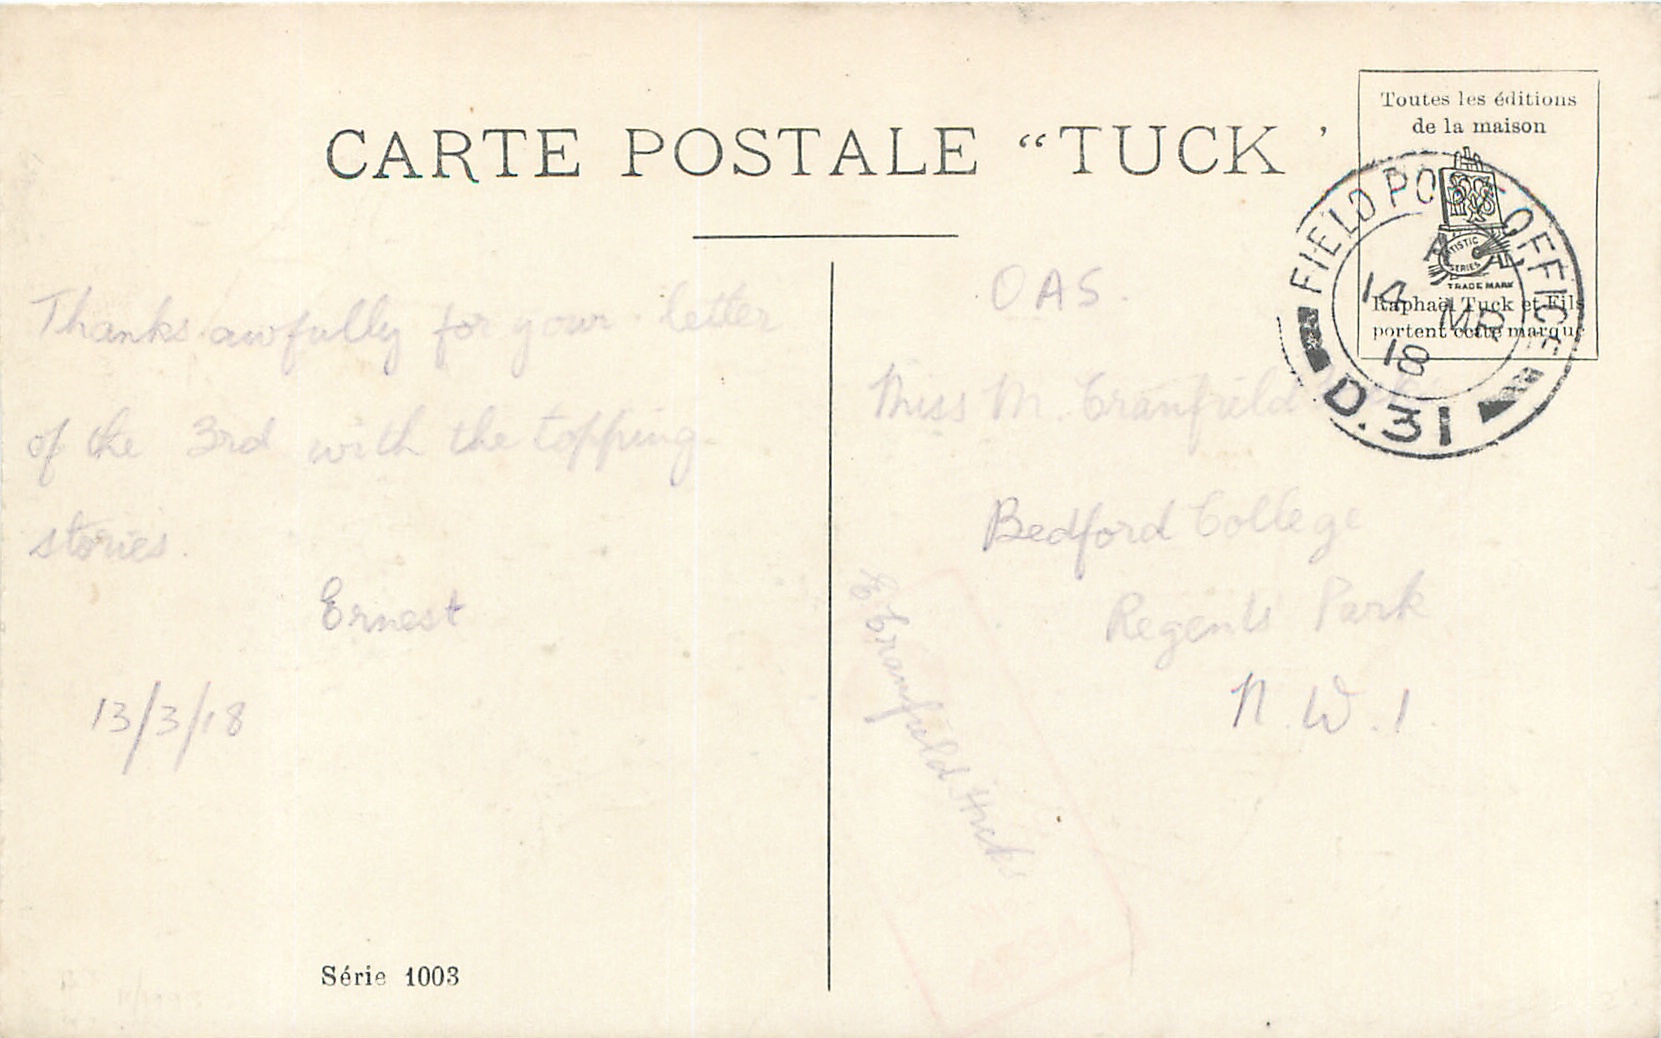 CARTE POSTALE “TUCK ’
Toutes les éditions
de la maison
ARTISTIC
SERIES
TRADE MARK
Raphaël Tuck et Fils
portent cette marque
FIELD POST OFFICE
14
MR
18
D.31
Thanks awfully for your letter
of the 3rd with the topping
stories.
Ernest
13/3/18
OAS.
Miss M. Cranfield Hicks
Bedford College
Regents Park
N.W.1.
E Cranfield Hicks
Série 1003